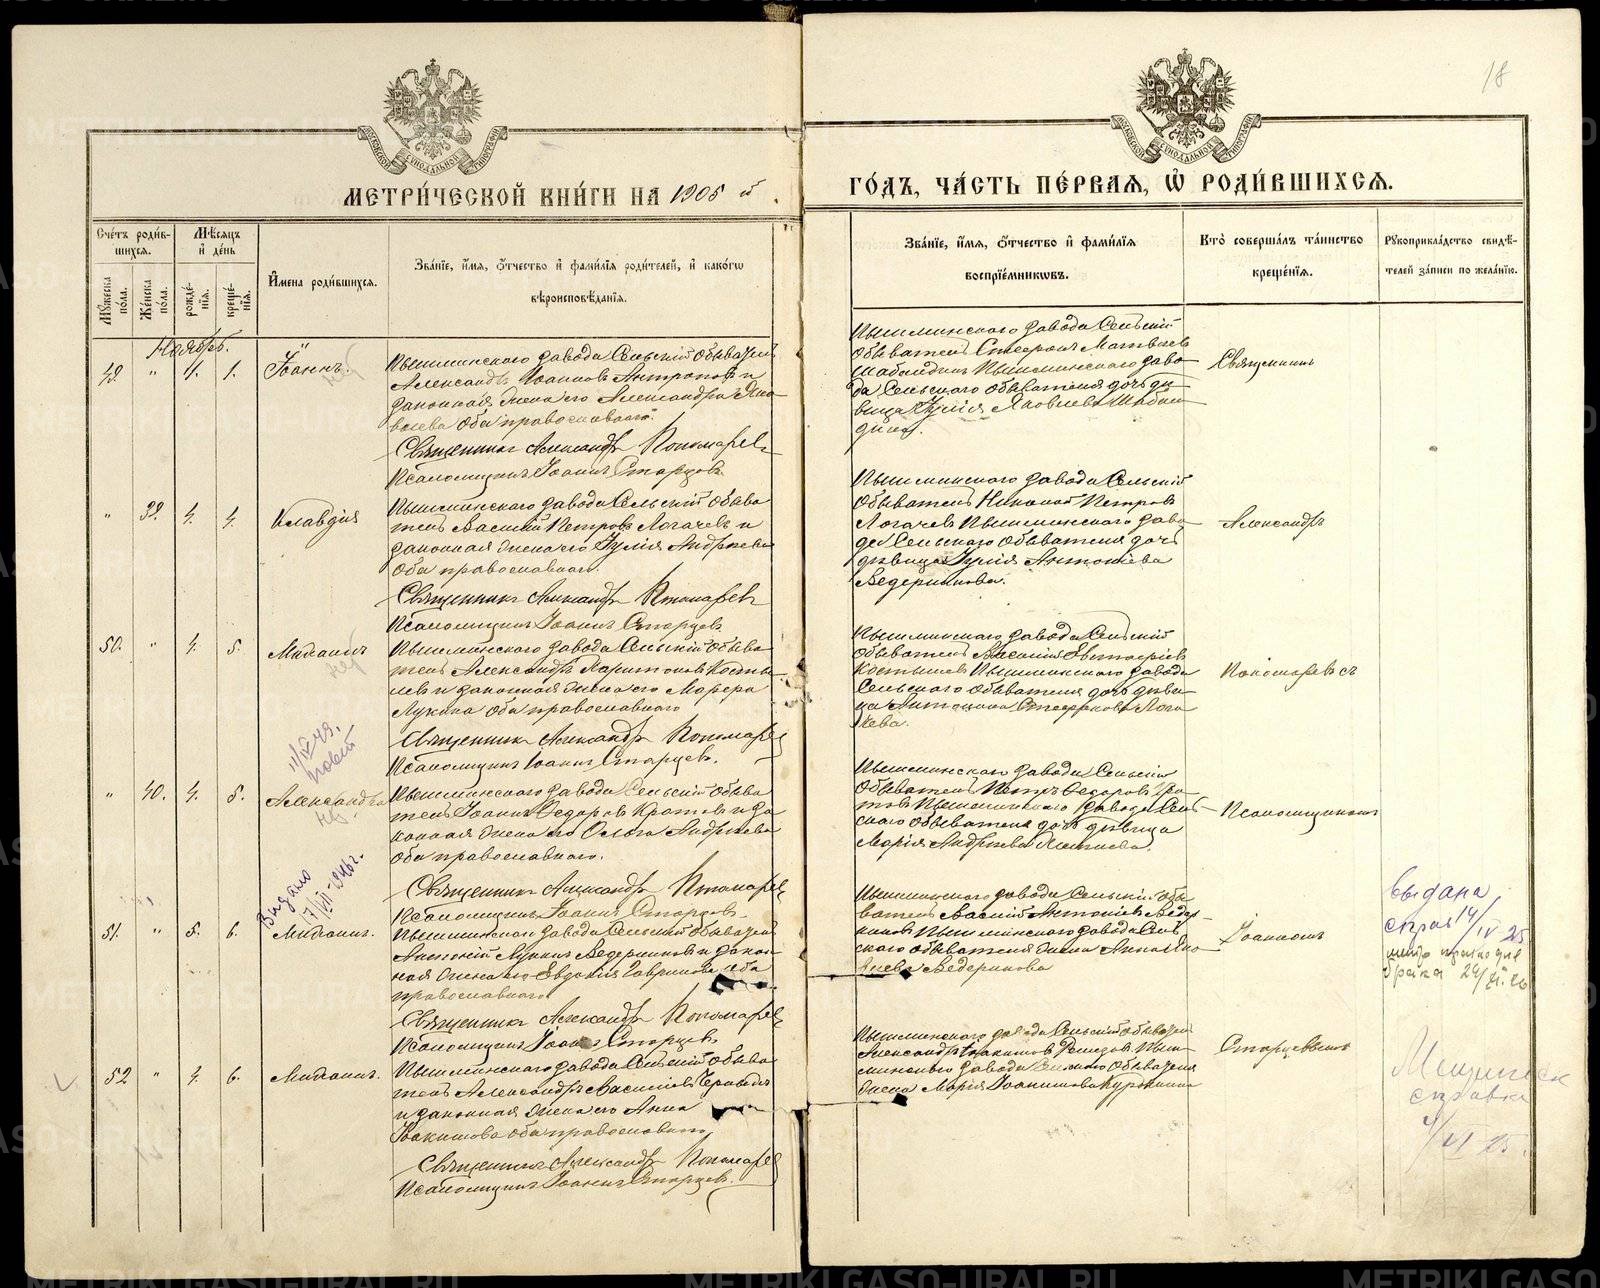 18
МЕТРИ́ЧЕСКОЙ КНИ́ГИ НА 1905 й
ГО́ДЪ, ЧА́СТЬ ПЕ́РВАЯ, Ѿ РОДИ́ВШИХСЯ.
Сче́тъ роди́в-
шихся.
Мѣ́сяцъ
и де́нь
Му́жеска по́ла.
Же́нска по́ла.
рожде́нїя.
креще́нїя.
И́мена роди́вшихся.
Зва́нїе, и́мя, о́тчество и фами́лїя роди́телей, и како́гѡ
вѣроисповѣ́данїя.
Зва́нїе, и́мя, о́тчество и фами́лїя
воспрїе́мникѡвъ.
Кто̀ соверша́лъ та́инство
креще́нїя.
Рꙋкоприкла́дство свидѣ́-
телей за́писи по жела́нїю.
Ноябрь.
49. " 1. 1. Іоаннъ.
Пышминскаго завода Сельскій обыватель
Александръ Іоанновъ Антроповъ и
законная жена его Александра Яко-
влева оба православнаго.
Священникъ Александръ Пономаревъ
Псаломщикъ Іоаннъ Старцевъ
Пышминскаго завода Сельскій
обыватель Стефанъ Матвѣевъ
Шабалдинъ Пышминскаго заво-
да Сельскаго обывателя дочь дѣ-
вица Іулія Яковлева Шабал-
дина.
Священникъ
" 39. 4. 4. Клавдія
Пышминскаго завода Сельскій обыва
тель Василій Петровъ Логачевъ и
законная жена его Іулія Андреева
оба православнаго.
Священникъ Александръ Пономаревъ
Псаломщикъ Іоаннъ Старцевъ.
Пышминскаго завода Сельскій
обыватель Николай Петровъ
Логачевъ Пышминскаго заво-
да Сельскаго обывателя дочь
дѣвица Іулія Антоніева
Ведерникова.
Александръ
50. " 4. 5. Михаилъ
Пышминскаго завода Сельскій обыва
тель Александръ Харитоновъ Косты-
левъ и законная жена его Марѳа
Лукина оба православнаго
Священникъ Александръ Пономаревъ
Псаломщикъ Іоаннъ Старцевъ.
Пышминскаго завода Сельскій
обыватель Василій
Костылевъ Пышминскаго завода
Сельскаго обывателя дочь дѣви-
ца Стефанова Лога
чева.
Пономаревъ съ
" 40. 4. 5. Александра
Пышминскаго завода Сельскій обыва
тель Іоаннъ Ѳедоровъ и за
конная жена его Ольга Андреева
оба православнаго.
Священникъ Александръ Пономаревъ
Псаломщикъ Іоаннъ Старцевъ.
Пышминскаго завода Сельскій
обыватель Петръ Ѳедоровъ
Пышминскаго завода Сель-
скаго обывателя дочь дѣвица
Марія Андреева
Псаломщикомъ
Выдано
17/VII-1946г.
51. " 5. 6. Михаилъ.
Пышминскаго завода Сельскій обыватель
Антоній Лукинъ Ведерниковъ и закон-
ная жена его Евдокія Гаврилова оба
православнаго
Священникъ Александръ Пономаревъ
Псаломщикъ Іоаннъ Старцевъ
Пышминскаго завода Сельскій обы-
ватель Василій Антоніевъ Ведер-
никовъ Пышминскаго завода Сель
скаго обывателя жена Анна
Ведерникова
Іоанномъ
Выдана
справ 14/IV 25
52 " 4. 6. Михаилъ.
Пышминскаго завода Сельскій обыва
тель Александръ Василіевъ
и законная жена его Анна
Іоакимова оба православнаго
Священникъ Александръ Пономаревъ
Псаломщикъ Іоаннъ Старцевъ.
Пышминскаго завода Сельскій обыватель
Александръ Пыш-
минскаго завода Сельскаго обывателя
жена Марія Іоакимова
Старцевымъ
справка
METRIKI.GASO-URAL.RU